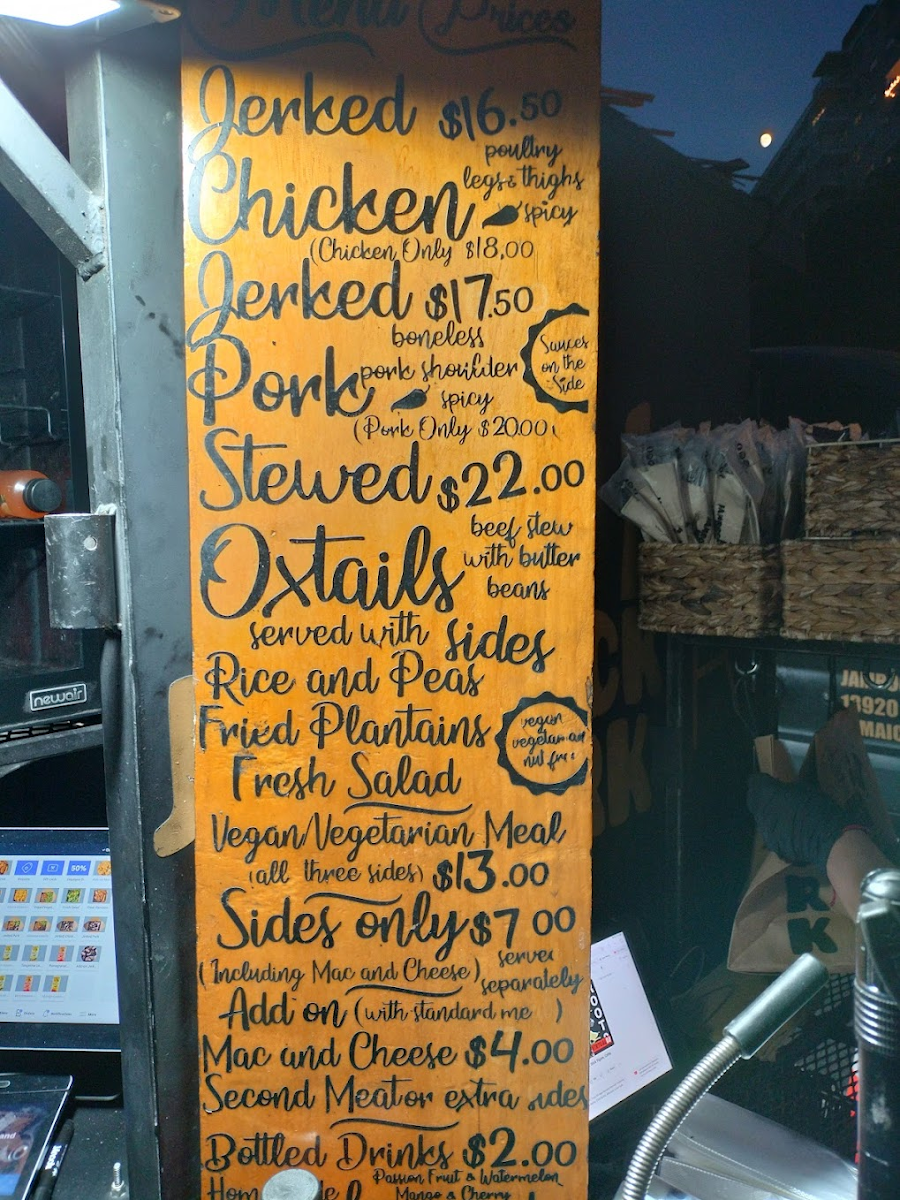 Menu Prices
Jerked $16.50
poultry
legs & thighs
Chicken spicy
(Chicken Only $18.00
Jerked $17.50
boneless
Pork pork shoulder
spicy
Sauces
on the
Side
(Pork Only $20.00)
Stewed $22.00
Oxtails beef stew
with butter
beans
served with sides
Rice and Peas
Fried Plantains
Fresh Salad
vegan
vegetarian
nut fre
Vegan/Vegetarian Meal
(all three sides) $13.00
Sides only $7 00
(Including Mac and Cheese) serve
separately
Add on (with standard me )
Mac and Cheese $4.00
Second Meat or extra sides
Bottled Drinks $2.00
Passion Fruit & Watermelon
Mango & Cherry
Hom
newair
50%
JAMRO
13920
MAIC
RK
CK
RK